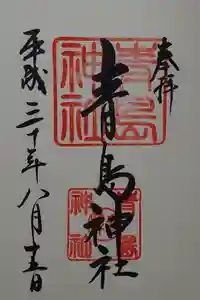 奉拝
青島神社
平成三十年八月十五日
青島神社
青島神社